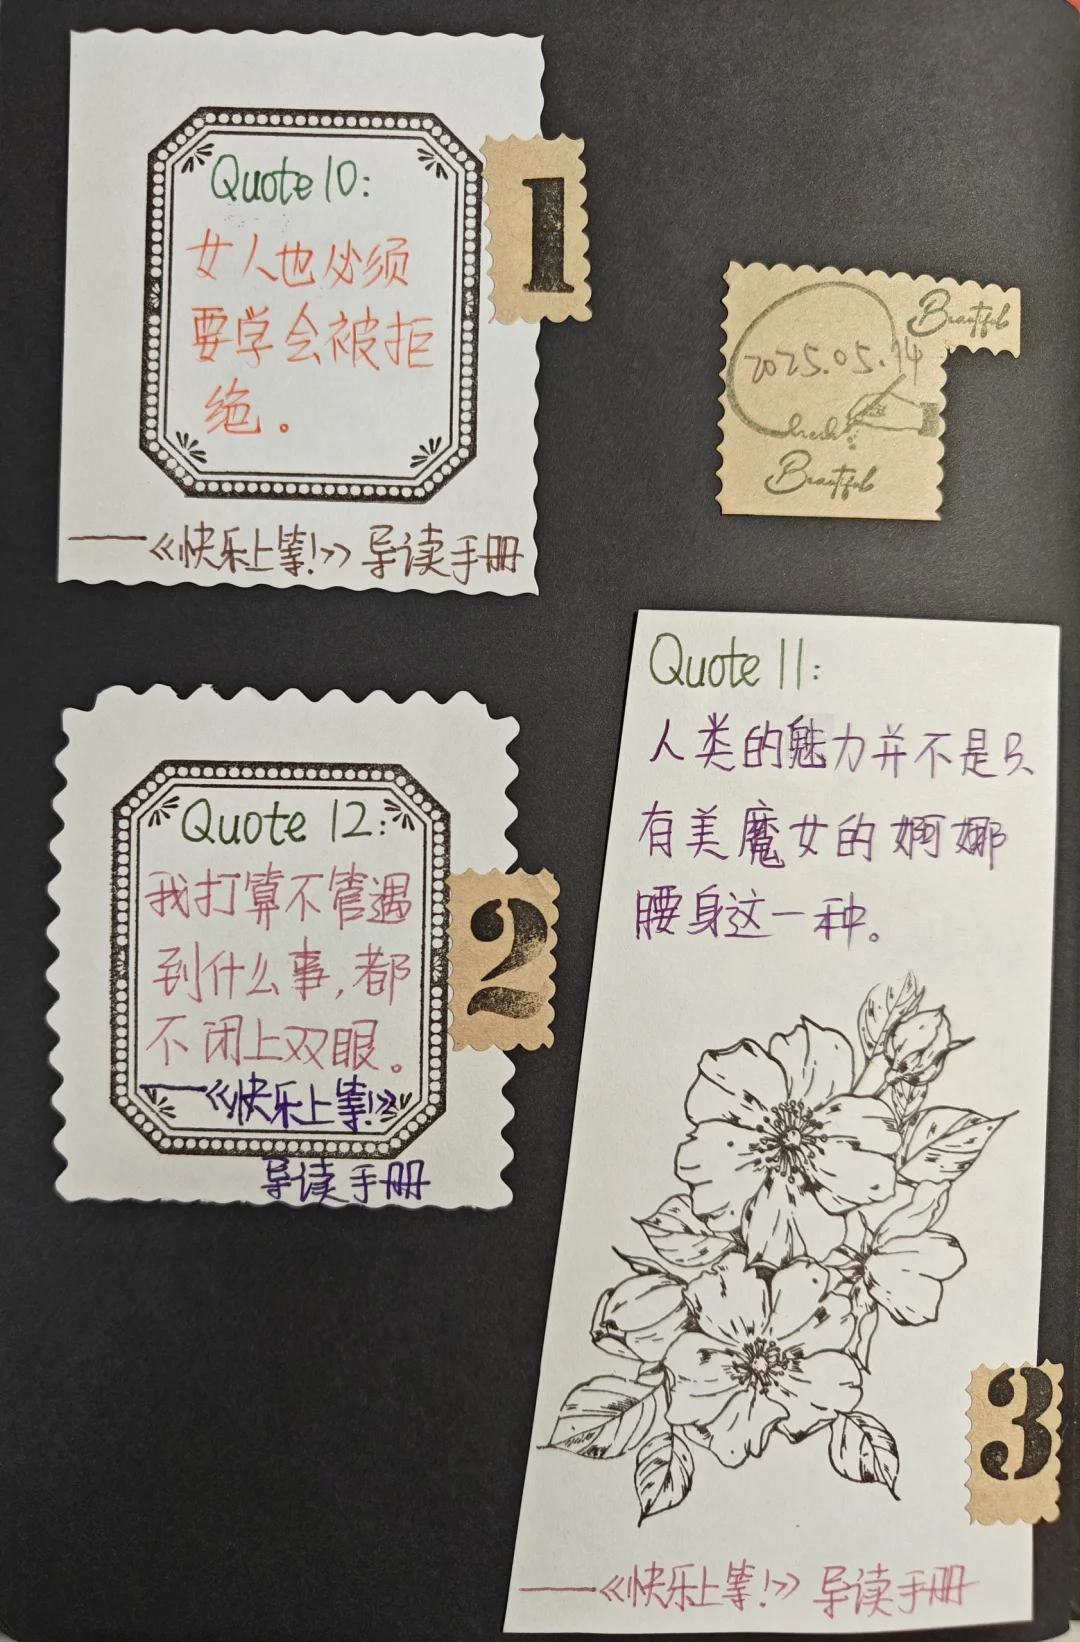 Quote 10:
女人也必须
要学会被拒
绝。
——《快乐上等!》导读手册
1
Beautiful
2025.05.14
Beautiful
Quote 12:
我打算不管遇
到什么事,都
不闭上双眼。
——《快乐上等!》
导读手册
2
Quote 11:
人类的魅力并不是只
有美魔女的婀娜
腰身这一种。
3
——《快乐上等!》导读手册